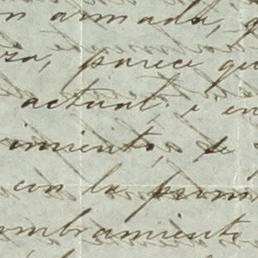 n armada, q
za, parece qu
actual, i en
imiento, se
con la prim
ombramiento